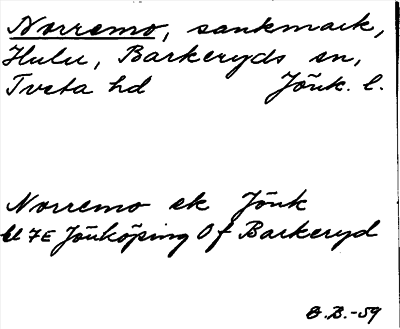 Norremo, sankmark,
Hulu, Barkeryds sn,
Tveta hd Jönk. l.
Norremo ek Jönk
bl 7E Jönköping Of Barkeryd
B.-59